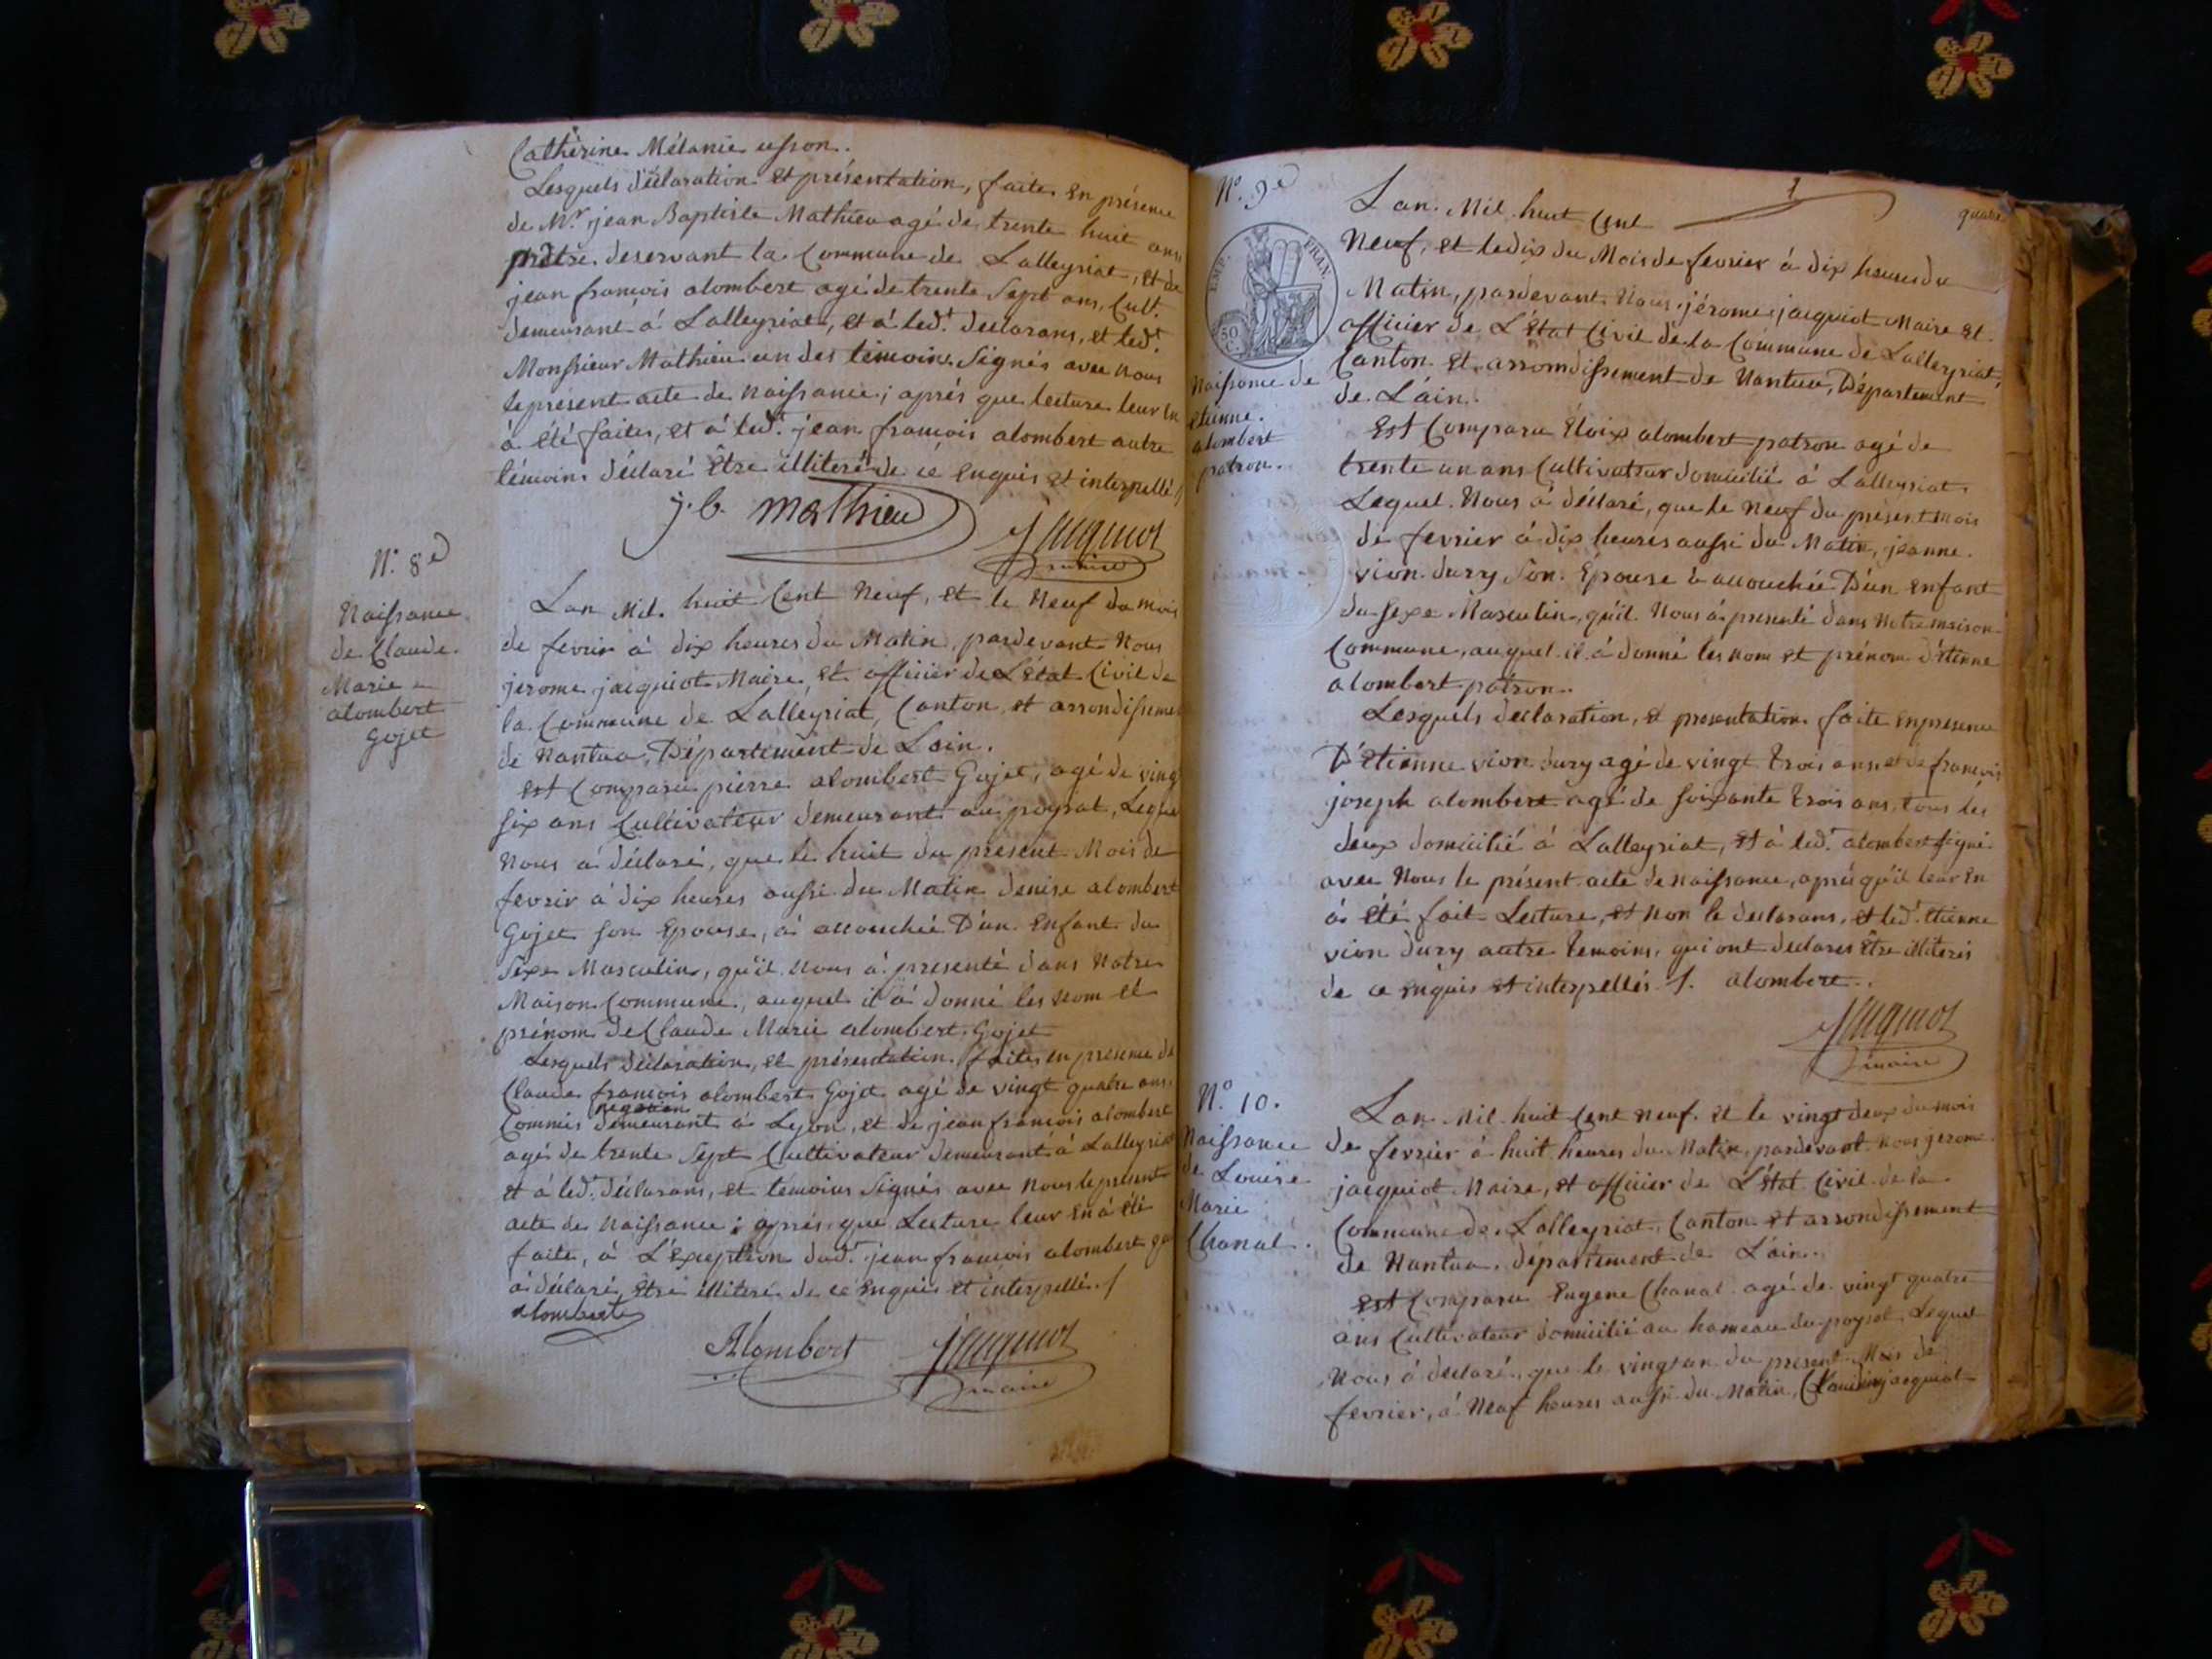 Catherine Mélanie
Lesquels déclaration et présentation, faites en présence
de Mr. jean Baptiste Mathieu agé de trente huit ans
prêtre deservant la Commune de Lalleyriat, et de
jean françois alombert agé de trente Sept ans, Cult.
demeurant á Lalleyriat, et á led.t declarans, et led.t
Monsieur Mathieu un des témoins Signés avec nous
le présent acte de naissance; aprés que lecture leur en
á été faites, et á led.t jean françois alombert autre
témoins déclaré être illiteré de ce enquis et interpellé
j. b. mathieu
Jacquiot
maire
N.° 8e
Naissance
de Claude
Marie
alombert
Gojet
Lan Mil huit Cent Neuf, et le Neuf du mois
de fevrir á dix heures du Matin, pardevant Nous
jerome jacquiot Maire, et officier de L'état Civil de
la Commune de Lalleyriat, Canton, et arrondisseme
de Nantua, Département de Lain.
est Comparu pierre alombert Gojet, agé de ving
six ans Cultivateur demeurant au poysat, Leque
Nous á déclaré, que le huit du present Mois de
fevrir á dix heures aussi du Matin denise alombert
Gojet son Epouse, á accouchée D'un Enfant du
Sexe Masculin, qu'il nous á presenté dans Notre
Maison Commune, auquel il á donné les nom et
prénom de Claude Marie alombert Gojet
Lesquels déclaration, et présentation faites en presence de
Claude françois alombert Gojet agé de vingt quatre ans
negotian
Commis demeurant á Lyon, et de jean françois alombert
agé de trente Sept Cultivateur demeurant á Lalleyriat
et á led.t déclarans, et temoins Signés avec nous le present
acte de naissance; aprés que Lecture leur en á été
faite, á L'exception dud.t jean françois alombert qui
á déclaré etre illiteré de ce enquis et interpellé./
alombert
Alombert
Jacquiot
maire
N.° 9e
quatre
EMP. FRAN.
50 C.
Naissance de
etienne
alombert
patron.
Lan Mil huit Cent
Neuf, et le dix du Mois de fevrier á dix heures du
Matin, pardevant Nous jérome jacquiot Maire et
officier de L'état Civil de la Commune de Lalleyriat,
Canton et arrondissement de Nantua, Département
de L'ain.
Est Comparu Éloix alombert patron agé de
trente un ans Cultivateur domicilié á Lalleyriat,
Lequel Nous á déclaré, que le Neuf du présent Mois
de fevrier á dix heures aussi du Matin, jeanne
vion dury Son Épouse á accouchée D'un Enfant
du Sexe Masculin, qu'il Nous á presenté dans Notre maison
Commune, auquel il á donné les nom et prénom d'étienne
alombert patron.
Lesquels declaration, et presentation faite en presence
D'etienne vion dury agé de vingt trois ans et de françois
joseph alombert agé de soixante trois ans, tous les
deux domicilié á Lalleyriat, et á led.t alombert signé
avec Nous le présent acte de Naissance, aprés qu'il leur en
á été fait Lecture, et non le declarans, et led.t etienne
vion dury autre temoins, qui ont declares être illiterés
de ce enquis et interpellés ./. alombert
Jacquiot
maire
N.° 10.
Naissance
de Louise
Marie
Chanal.
Lan Mil huit Cent Neuf et le vingt deux du mois
de fevrier á huit heures du Matin, pardevant nous jerome
jacquiot Maire, et officier de L'état Civil de la
Commune de Lalleyriat, Canton et arrondissement
de Nantua, département de L'ain.
est Comparu Eugene Chanal agé de vingt quatre
ans Cultivateur domicilié au hameau du poysat, Lequel
Nous á declaré, que le vingt un du present Mois de
fevrier, á Neuf heures aussi du Matin, jacquiot